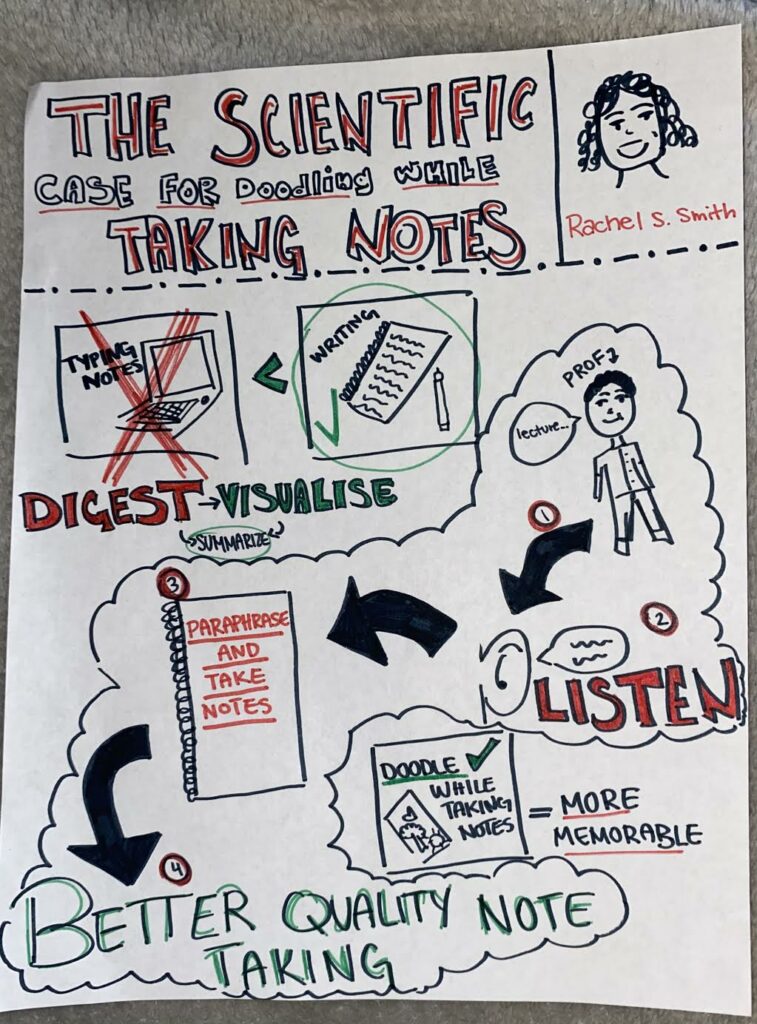 THE SCIENTIFIC
CASE FOR Doodling WHILE
TAKING NOTES
Rachel S. Smith
TYPING
NOTES
<
WRITING
PROF
lecture...
DIGEST → VISUALISE
SUMMARIZE
1
2
LISTEN
3
PARAPHRASE
AND
TAKE
NOTES
DOODLE
WHILE
TAKING
NOTES
= MORE
MEMORABLE
4
BETTER QUALITY NOTE
TAKING